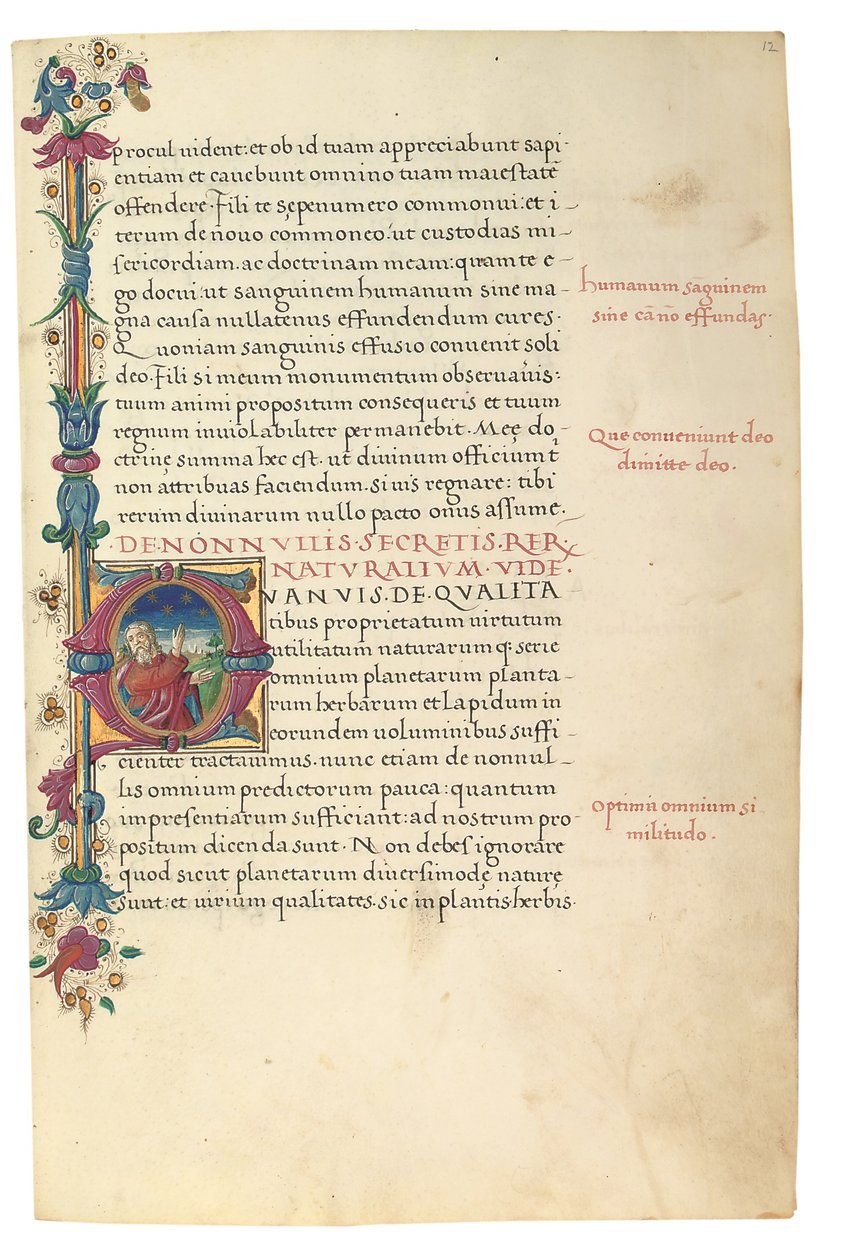 12
procul uident: et ob id tuam appreciabunt sapi-
entiam et cauebunt omnino tuam maiestatē
offendere. Fili te sępenumero commonui: et i-
terum de nouo commoneo. ut custodias mi-
sericordiam. ac doctrinam meam: quam te e-
go docui: ut sanguinem humanum sine ma-
gna causa nullatenus effundendum cures.
Quoniam sanguinis effusio conuenit soli
deo. Fili si meum monumentum obseruauis:
tuum animi propositum consequeris et tuum
regnum inuiolabiliter permanebit. Meę do-
ctrinę summa hec est. ut diuinum officium t
non attribuas faciendum. si uis regnare: tibi
rerum diuinarum nullo pacto onus assume.
DE NONNVLLIS. SECRETIS. RER
NATVRALIVM. VIDE.
VANVIS. DE. QVALITA
tibus proprietatum uirtutum
utilitatum naturarum q: serie
omnium planetarum planta-
rum herbarum et lapidum in
eorundem uoluminibus suffi-
cienter tractauimus. nunc etiam de nonnul-
lis omnium predictorum pauca: quantum
impresentiarum sufficiant: ad nostrum pro-
positum dicenda sunt. Non debes ignorare
quod sicut planetarum diuersimodę naturę
sunt: et uirium qualitates. sic in plantis. herbis.
humanum sāguinem
sine cā nō effundas.
Que conueniunt deo
dimitte deo.
Optima omnium si
militudo.